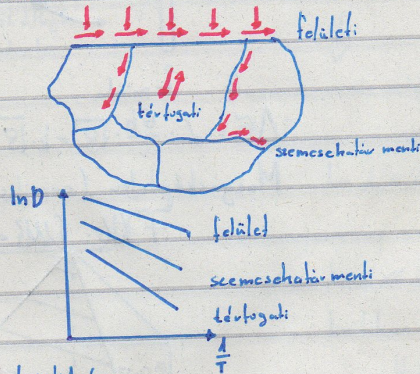 felületi
térfogati
szemcsehatár menti
lnD
felület
szemcsehatár menti
térfogati
1/T